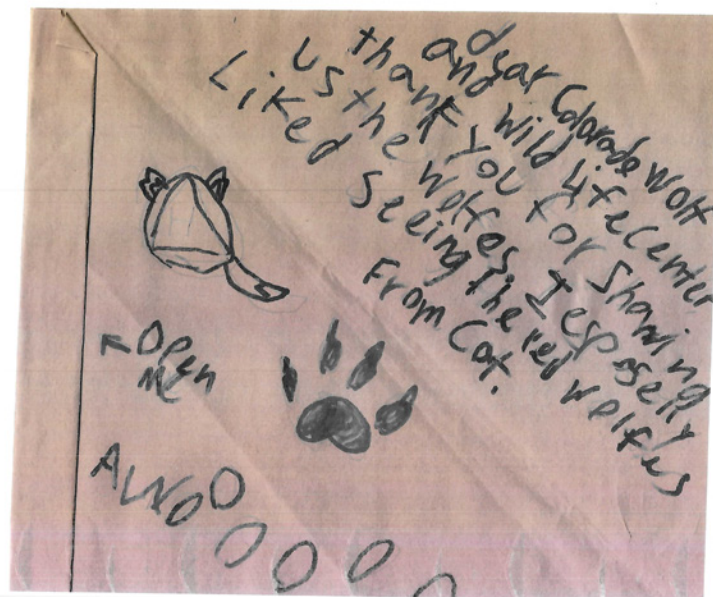 dear Colorado wolf
and wild life center
thank you for Showing
us the welfes. I espsselly
Liked seeing the red welfes
From Cat.
Open
Me
ALNOOOOOO